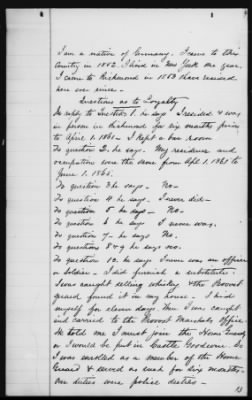 I am a native of Germany. I came to this
country in 1852. I lived in New York one year.
I came to Richmond in 1853 & have resided
here ever since.
Questions as to Loyalty
In reply to Quest 1. he says I resided & was
in person in Richmond for six months prior
to April 1. 1861. I kept a bar room.
To question 2. he says. My residence and
occupation were the same from Apl. 1. 1861 to
June 1. 1865.
To question 3 he says - No -
To question 4 he says. I never did -
To question 5 he says - No.
To question 6 he says I never was.
To question 7 - he says No.
To questions 8 & 9 he says no.
To question 10. he says I never was an officer
or Soldier. I did furnish a substitute.
I was caught selling whiskey & the Provost
guard found it in my house. I hid
myself for eleven days then I was caught
and carried to the Provost Marshals office.
He told me I must join the Home Guard
or I would be put in Castle Goodwin. So
I was enrolled as a member of the Home
Guard & served as such for six months.
Our duties were police duties -